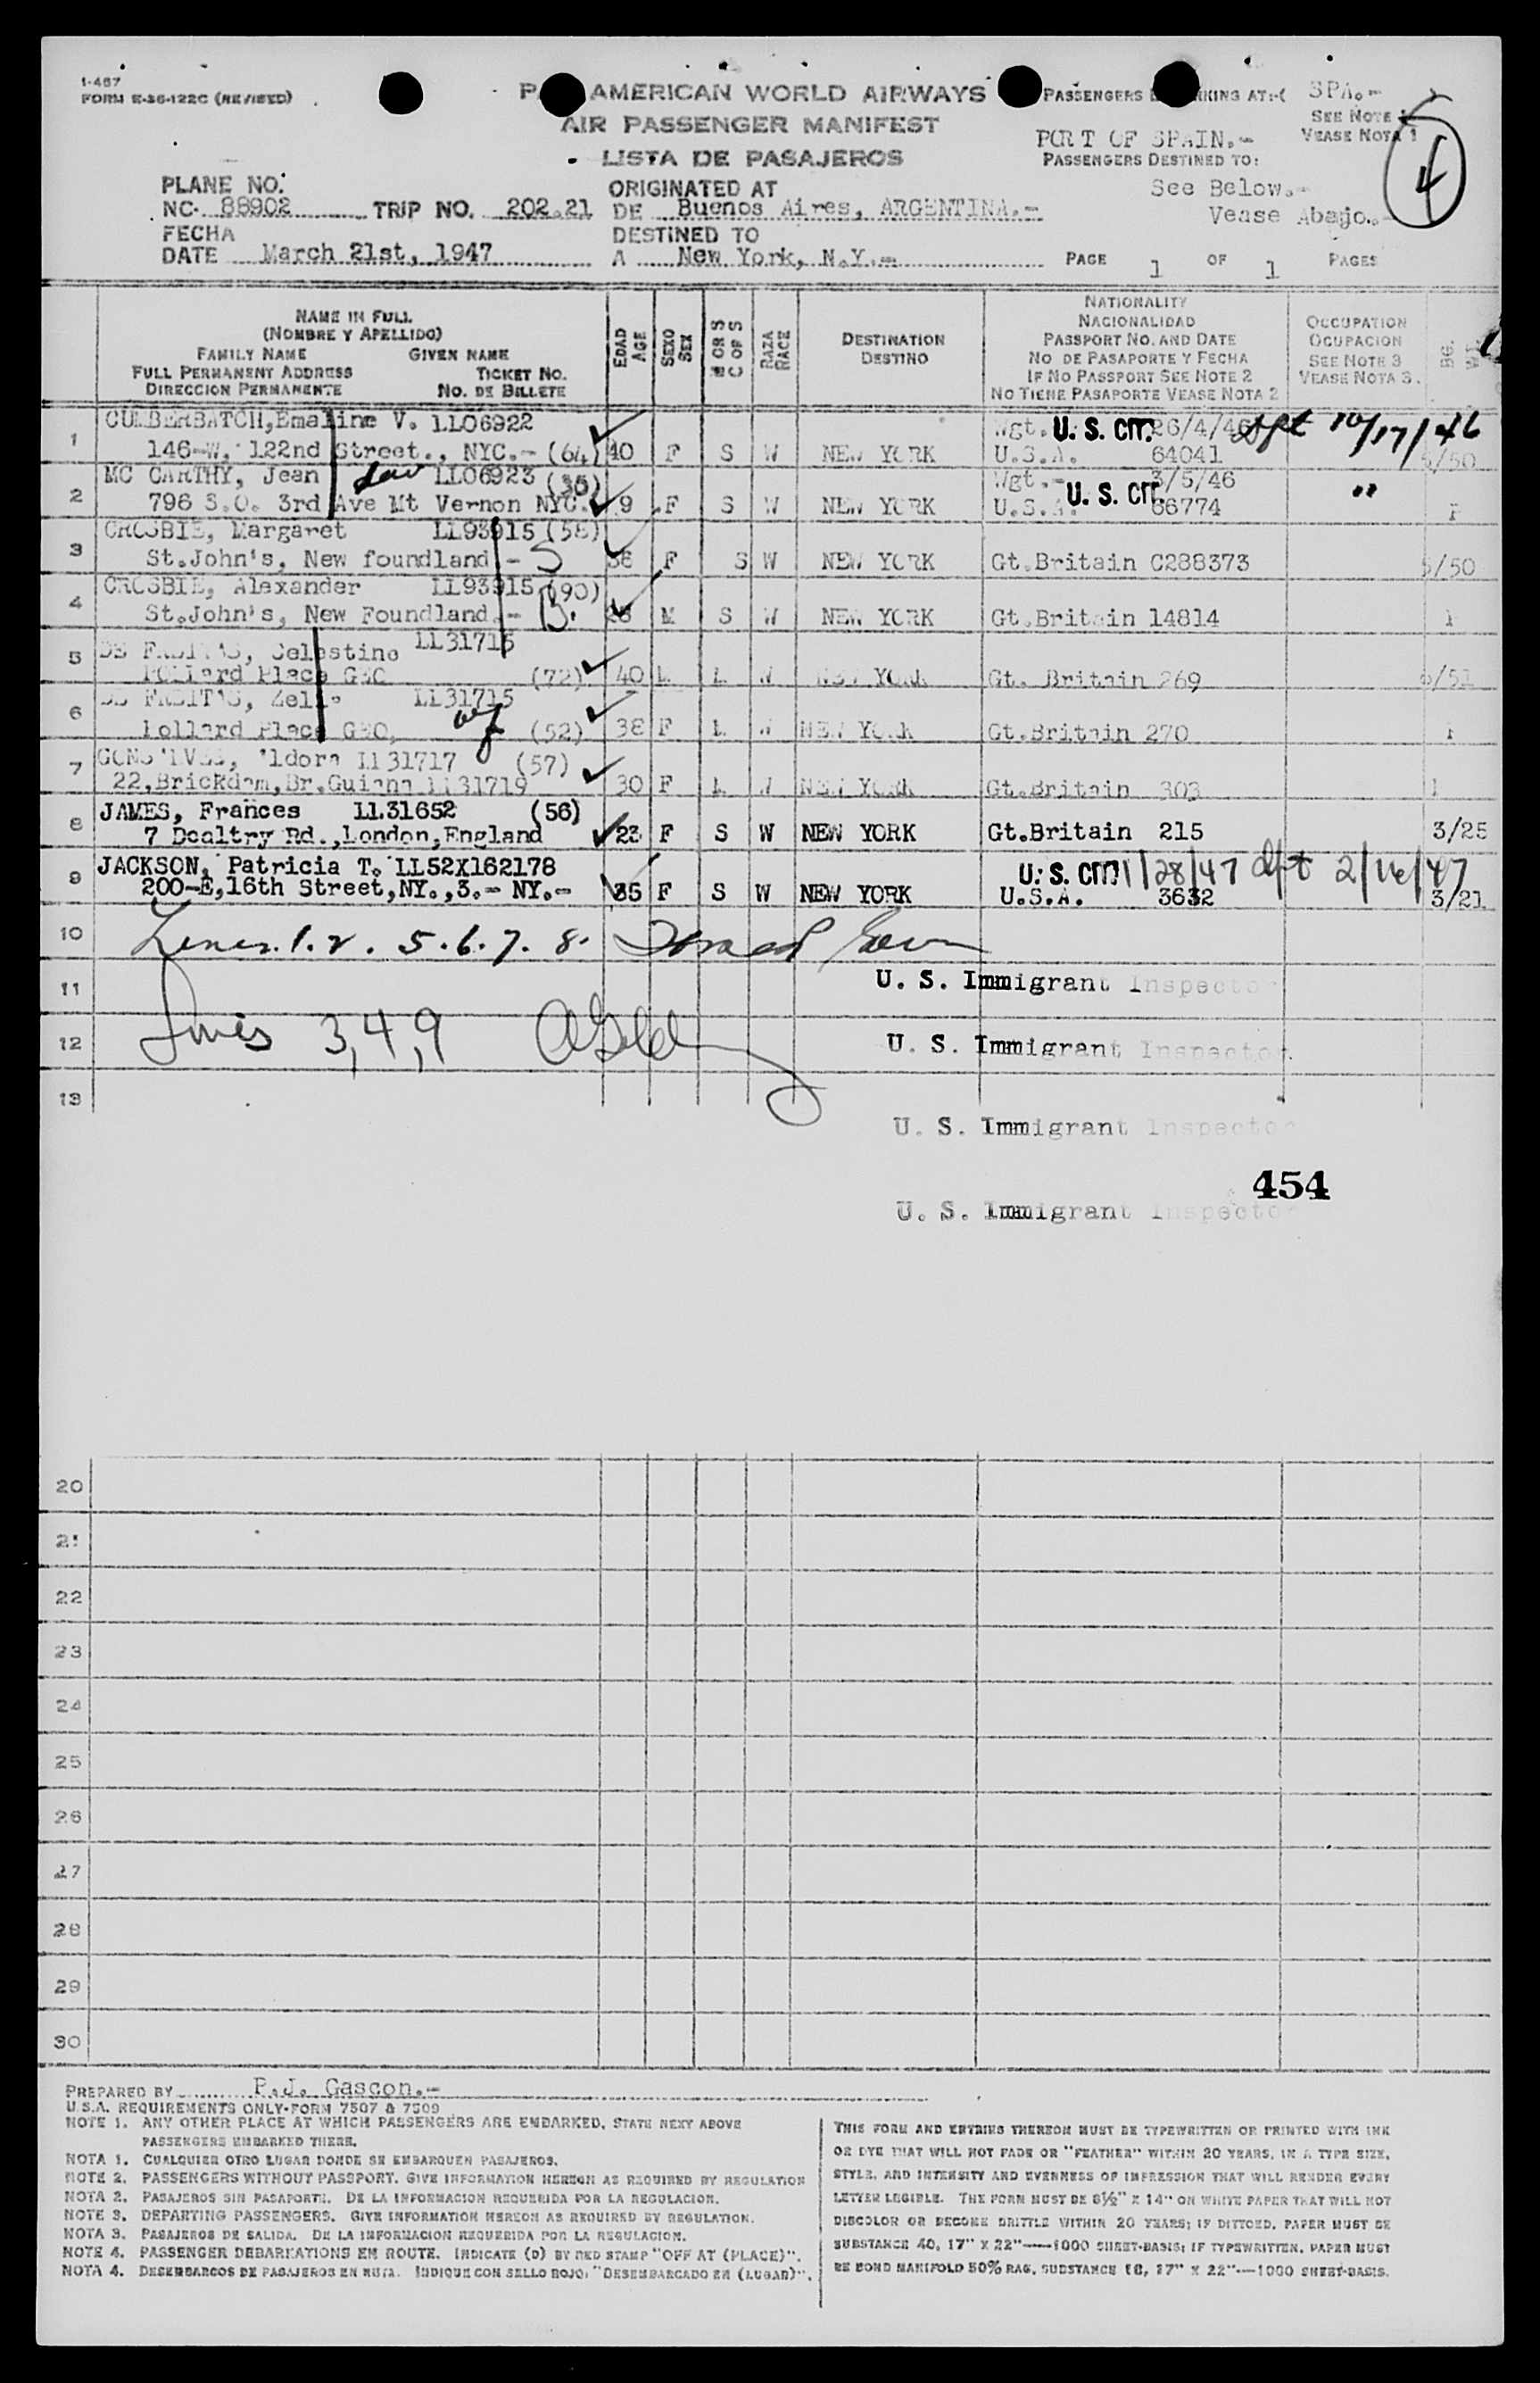 I-467
FORM E-36-122C (REVISED)
AMERICAN WORLD AIRWAYS
AIR PASSENGER MANIFEST
LISTA DE PASAJEROS
PASSENGERS AT:-( SPA.-
SEE NOTE 1
VEASE NOTA 1
PORT OF SPAIN.-
PASSENGERS DESTINED TO:
See Below.-
Vease Abajo.-
4
PLANE NO.
NC- 88902 TRIP NO. 202.21
FECHA
DATE March 21st, 1947
ORIGINATED AT
DE Buenos Aires, ARGENTINA.-
DESTINED TO
A New York, N.Y.-
PAGE 1 OF 1 PAGES
NAME IN FULL
(NOMBRE Y APELLIDO)
FAMILY NAME GIVEN NAME
FULL PERMANENT ADDRESS TICKET NO.
DIRECCION PERMANENTE NO. DE BILLETE
EDAD AGE
SEXO SEX
M OR S C OF S
RAZA RACE
DESTINATION
DESTINO
NATIONALITY
NACIONALIDAD
PASSPORT NO. AND DATE
NO DE PASAPORTE Y FECHA
IF NO PASSPORT SEE NOTE 2
NO TIENE PASAPORTE VEASE NOTA 2
OCCUPATION
OCUPACION
SEE NOTE 3
VEASE NOTA 3.
1 CUMBERBATCH, Emaline V. LL06922 Wgt. U. S. CIT. 26/4/46 10/17/46
146-W. 122nd Street., NYC.- (64) 40 F S W NEW YORK U.S.A. 64041 5/50
2 MC CARTHY, Jean LL06923 (36) Wgt.- U. S. CIT. 3/5/46
796 S.O. 3rd Ave Mt Vernon NYC. 9 F S W NEW YORK U.S.A. 66774 "
3 CROSBIE, Margaret LL93915 (58)
St.John's, New foundland - S F S W NEW YORK Gt.Britain C288373 5/50
4 CROSBIE, Alexander LL93915 (90)
St.John's, New Foundland.- B. M S W NEW YORK Gt.Britain 14814
5 DE FREITAS, Celestino LL31715
Pollard Place GEO (72) 40 NEW YORK Gt. Britain 269 /51
6 DE FREITAS, LL31715
Place GEO. (52) 38 F NEW YORK Gt.Britain 270
7 LL31717 (57)
22,Brickdam,Br.Guiana LL31719 30 F NEW YORK Gt.Britain 303
8 JAMES, Frances LL31652 (56)
7 Dealtry Rd.,London,England 23 F S W NEW YORK Gt.Britain 215 3/25
9 JACKSON, Patricia T. LL52X162178 U. S. CIT. 1/28/47 dpt 2/16/47
200-E,16th Street,NY.,3.- NY.- 35 F S W NEW YORK U.S.A. 3632 3/21
10 Lines. 1. 2. 5. 6. 7. 8.
11 U. S. Immigrant Inspector
12 Lines 3, 4, 9 U. S. Immigrant Inspector
13
U. S. Immigrant Inspector
454
U. S. Immigrant Inspector
20
21
22
23
24
25
26
27
28
29
30
PREPARED BY P.J. Gascon.-
U.S.A. REQUIREMENTS ONLY-FORM 7507 & 7509
NOTE 1. ANY OTHER PLACE AT WHICH PASSENGERS ARE EMBARKED, STATE NEXT ABOVE
PASSENGERS EMBARKED THERE.
NOTA 1. CUALQUIER OTRO LUGAR DONDE SE EMBARQUEN PASAJEROS.
NOTE 2. PASSENGERS WITHOUT PASSPORT. GIVE INFORMATION HEREON AS REQUIRED BY REGULATION
NOTA 2. PASAJEROS SIN PASAPORTE. DE LA INFORMACION REQUERIDA POR LA REGULACION.
NOTE 3. DEPARTING PASSENGERS. GIVE INFORMATION HEREON AS REQUIRED BY REGULATION.
NOTA 3. PASAJEROS DE SALIDA. DE LA INFORMACION REQUERIDA POR LA REGULACION.
NOTE 4. PASSENGER DEBARKATIONS EN ROUTE. INDICATE (D) BY RED STAMP "OFF AT (PLACE)".
NOTA 4. DESEMBARCOS DE PASAJEROS EN RUTA. INDIQUE CON SELLO ROJO: "DESEMBARCADO EN (LUGAR)".
THIS FORM AND ENTRIES THEREON MUST BE TYPEWRITTEN OR PRINTED WITH INK
OR DYE THAT WILL NOT FADE OR "FEATHER" WITHIN 20 YEARS, IN A TYPE SIZE,
STYLE, AND INTENSITY AND EVENNESS OF IMPRESSION THAT WILL RENDER EVERY
LETTER LEGIBLE. THE FORM MUST BE 8½" X 14" ON WHITE PAPER THAT WILL NOT
DISCOLOR OR BECOME BRITTLE WITHIN 20 YEARS; IF DITTOED, PAPER MUST BE
SUBSTANCE 40, 17" X 22"—1000 SHEET-BASIS; IF TYPEWRITTEN, PAPER MUST
BE BOND MANIFOLD 50% RAG, SUBSTANCE 18, 17" X 22"—1000 SHEET-BASIS.